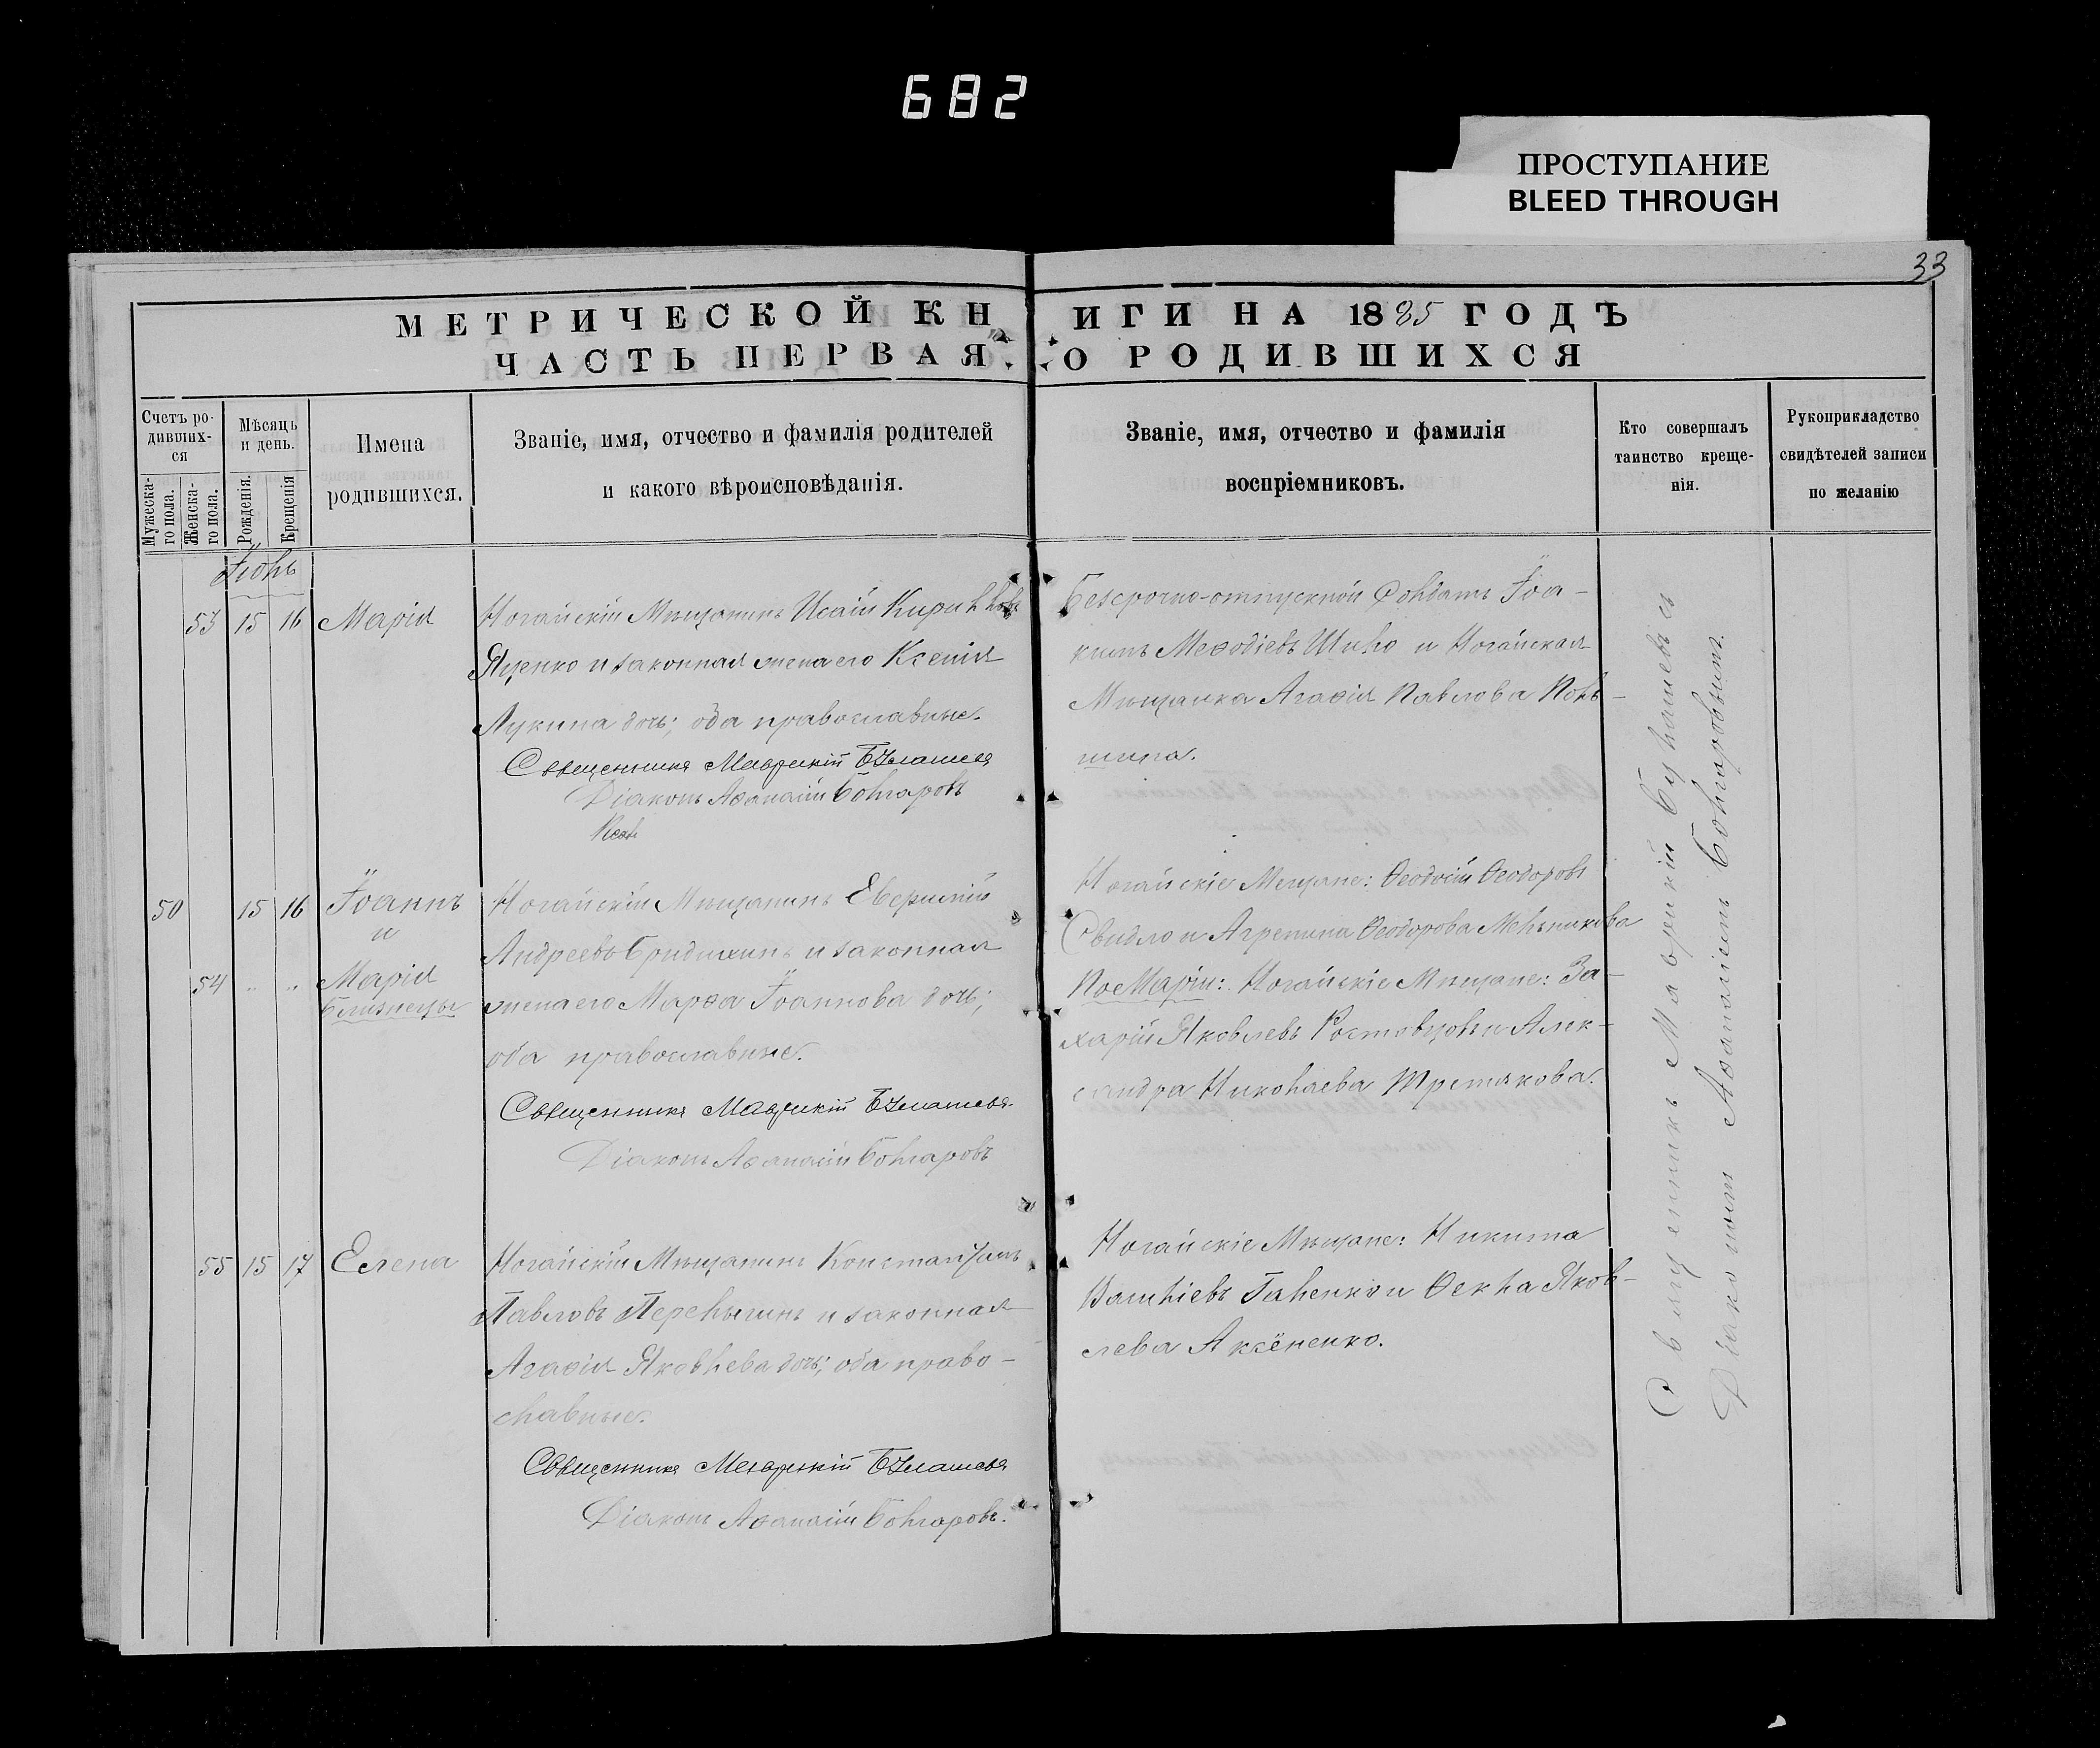 682
ПРОСТУПАНИЕ
BLEED THROUGH
33
МЕТРИЧЕСКОЙ КНИГИ НА 1885 ГОДЪ
ЧАСТЬ ПЕРВАЯ. О РОДИВШИХСЯ
Счетъ ро-
дивших-
ся
Мужеска-
го пола.
Женска-
го пола.
Мѣсяць
и день.
Рожденія.
Крещенія
Имена
родившихся.
Званіе, имя, отчество и фамилія родителей
и какого вѣроисповѣданія.
Званіе, имя, отчество и фамилія
воспріемниковъ.
Кто совершалъ
таинство креще-
нія.
Рукоприкладство
свидѣтелей записи
по желанію
Іюнь
53 15 16 Марія
Ногайскій Мѣщанинъ Исаій Кирилловъ
Яценко и законная жена его Ксенія
Лукина дочь; оба православные.
Священникъ Маврикій
Діаконъ Аѳанасій Болгаровъ
Безсрочно-отпускной Солдатъ Іоа-
кимъ Меѳодіевъ Шило и Ногайская
Мѣщанка Агаѳія Павлова
шина.
50 15 16 Іоаннъ
и
54 " " Марія
близнецы
Ногайскій Мѣщанинъ
Андреевъ и законная
жена его Марѳа Іоаннова дочь;
оба православные.
Священникъ Маврикій
Діаконъ Аѳанасій Болгаровъ
Ногайскіе Мещане: Ѳеодосій Ѳеодоровъ
Свидло и Агрепина Ѳеодорова Мельникова
По Маріи: Ногайскіе Мѣщане: За-
харій Яковлевъ Ростовцовъ и Алек-
сандра Николаева Третякова.
55 15 17 Елена
Ногайскій Мѣщанинъ Константинъ
Павловъ и законная
Агаѳія Яковлева дочь; оба право-
славные.
Священникъ Маврикій
Діаконъ Аѳанасій Болгаровъ.
Ногайскіе Мѣщане: Никита
Василіевъ Галенко и Ѳекла Яков-
лева Аксёненко.
Священникъ Маврикій съ
Діакономъ Аѳанасіемъ Болгаровымъ.